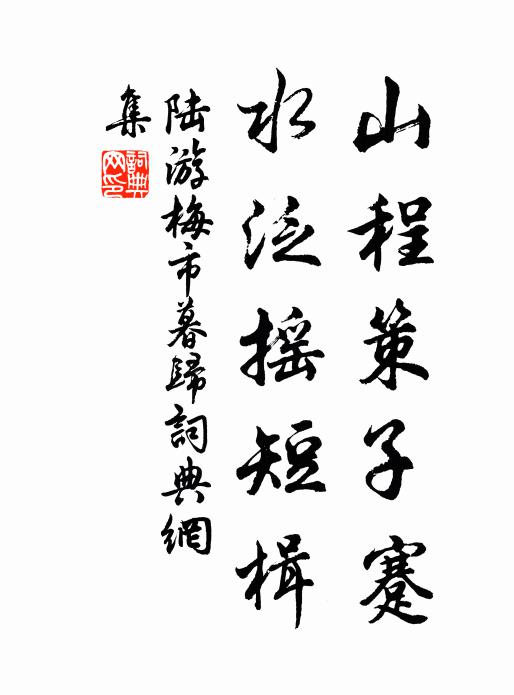 山程策子蹇
水泛摇短楫
陆游梅市暮歸詞典網
集
詞典
网印